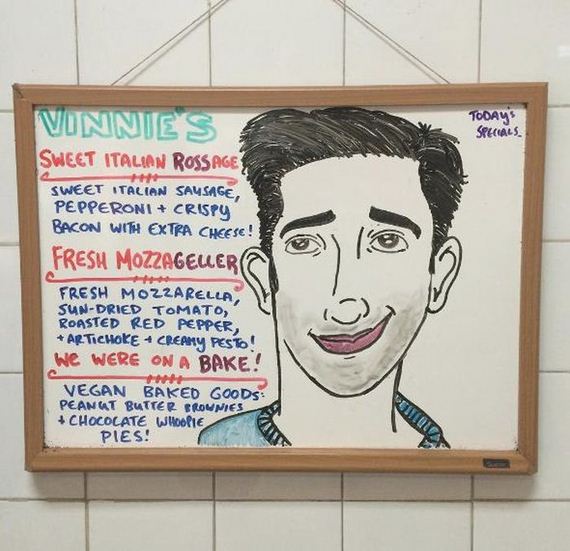 VINNIE'S
TODAY'S
SPECIALS
SWEET ITALIAN ROSSAGE
SWEET ITALIAN SAUSAGE,
PEPPERONI + CRISPY
BACON WITH EXTRA CHEESE!
FRESH MOZZAGELLER
FRESH MOZZARELLA,
SUN-DRIED TOMATO,
ROASTED RED PEPPER,
+ ARTICHOKE + CREAMY PESTO!
WE WERE ON A BAKE!
VEGAN BAKED GOODS:
PEANUT BUTTER BROWNIES
+ CHOCOLATE WHOOPIE
PIES!